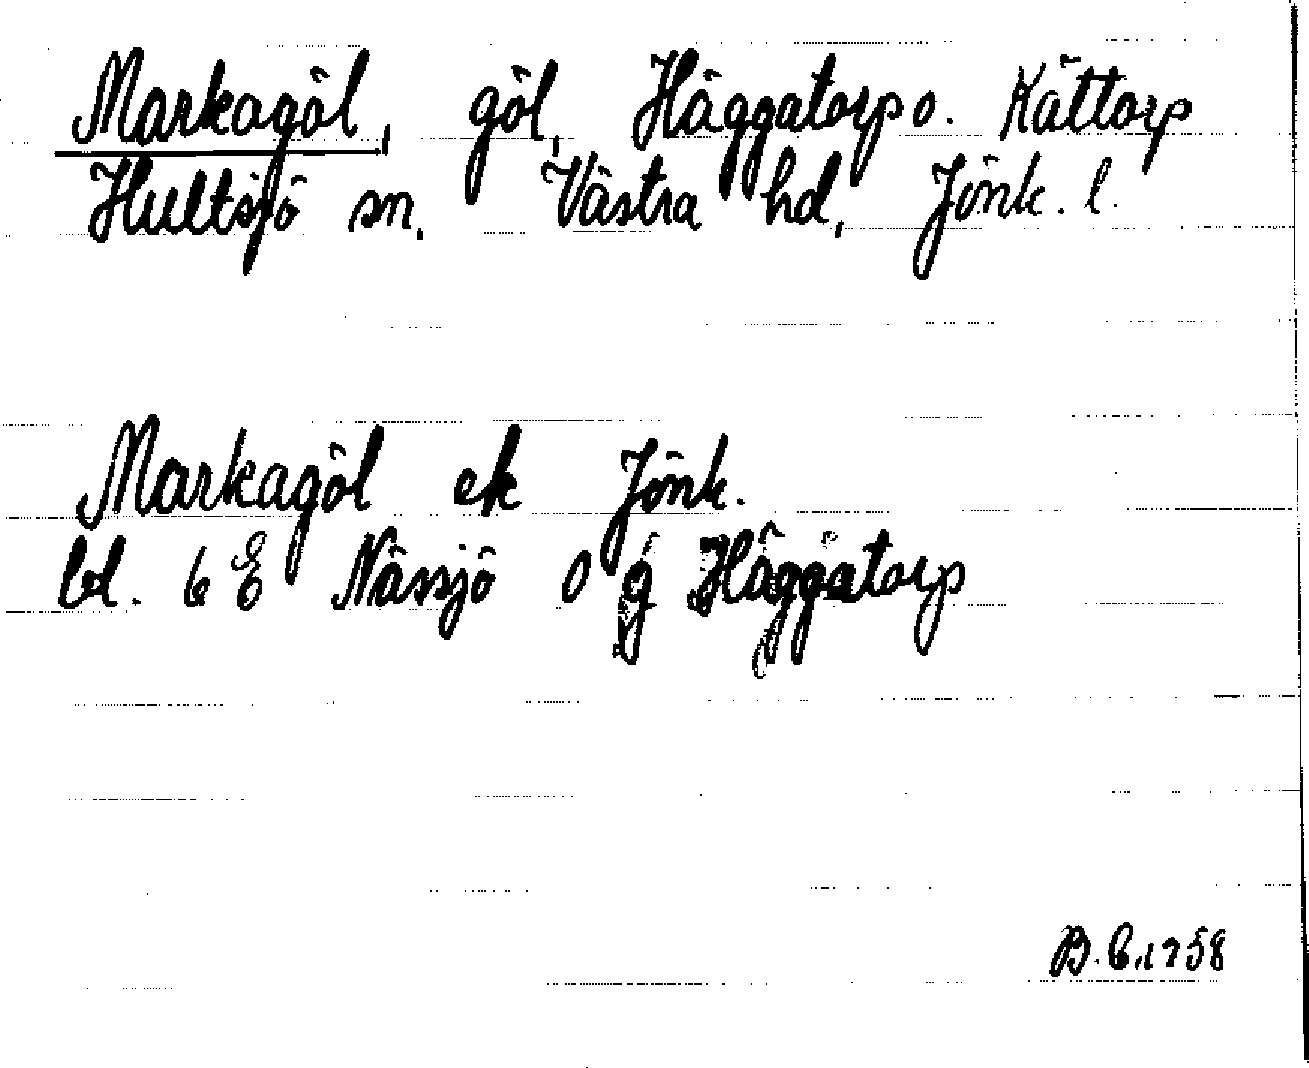 Markagöl, göl, Häggatorp o. Kättorp
Hultsjö sn. Västra hd, Jönk. l.
Markagöl ek Jönk.
bl. 6 E Nässjö O g Häggatorp